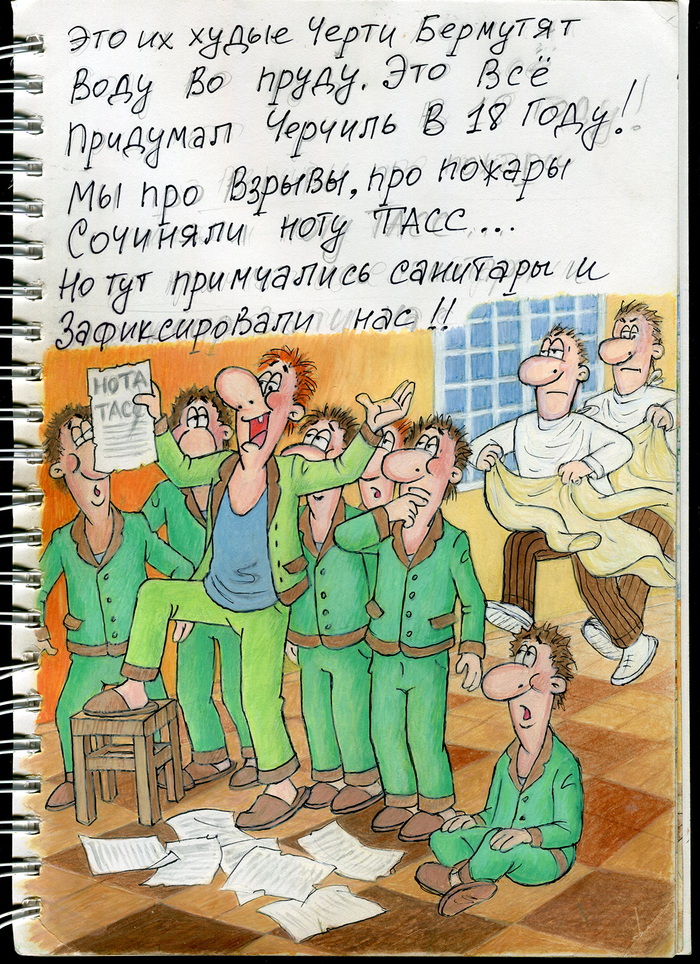 Это их худые Черти Бермутят
Воду Во пруду. Это Всё
Придумал Черчиль В 18 Году!!
Мы про Взрывы, про пожары
Сочиняли ноту ТАСС...
Но тут примчались санитары и
Зафиксировали нас!!
НОТА
ТАСС